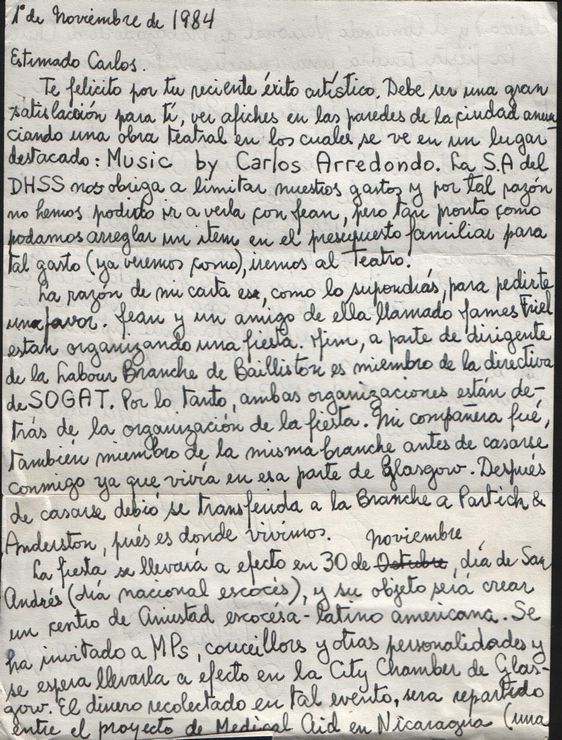 1º de Noviembre de 1984
Estimado Carlos.
Te felicito por tu reciente éxito artístico. Debe ser una gran
satisfacción para tí, ver afiches en las paredes de la ciudad anun
ciando una obra teatral en los cuales se ve en un lugar
destacado: Music by Carlos Arredondo. La S.A del
DHSS nos obliga a limitar nuestros gastos y por tal razón
no hemos podido ir a verla con Jean, pero tan pronto como
podamos arreglar un item en el presupuesto familiar para
tal gasto (ya veremos como), iremos al Teatro.
La razón de mi carta es, como lo supondrás, para pedirte
un favor. Jean y un amigo de ella llamado James Friel
están organizando una fiesta. Jim, a parte de dirigente
de la Labour Branche de Bailliston es miembro de la directiva
de SOGAT. Por lo tanto, ambas organizaciones están de-
trás de la organización de la fiesta. Mi compañera fué,
también miembro de la misma branche antes de casarse
conmigo ya que vivía en esa parte de Glasgow. Después
de casarse debió se transferida a la Branche a Partick &
Anderston, pués es donde vivimos.
Noviembre
La fiesta se llevará a efecto en 30 de Octubre, día de San
Andrés (día nacional escocés), y su objeto será crear
un centro de Amistad escocésa-latino americana. Se
ha invitado a MPs, councillors y otras personalidades y
se espera llevarla a efecto en la City Chamber de Glas-
gow. El dinero recolectado en tal evento, sera repartido
entre el proyecto de Medical Aid en Nicaragua (una